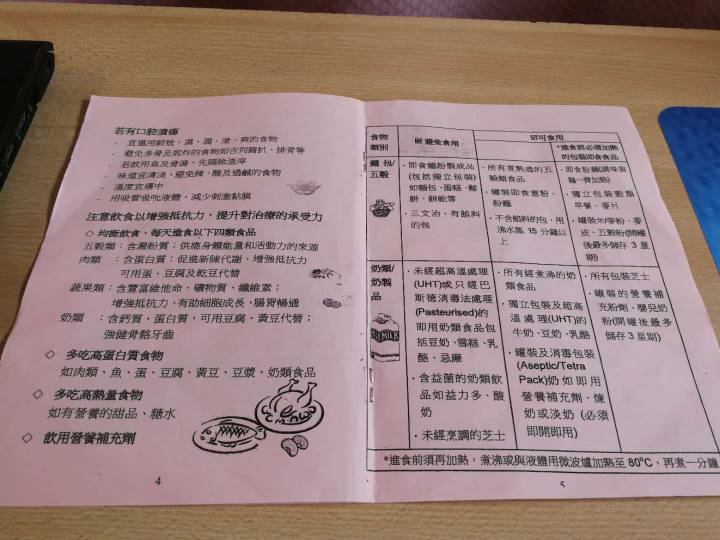 若有口腔潰瘍
- 宜選用較稔、濕、潤、滑、爽的食物
- 避免多骨及煎炸的食物如吉列豬扒、排骨等
- 若飲用魚及骨湯,先隔除渣滓
- 味道宜清淡,避免辣、酸及過鹹的食物
- 溫度宜適中
- 用吸管吸吮液體,減少刺激黏膜
注意飲食以增強抵抗力,提升對治療的承受力
◇ 均衡飲食,每天進食以下四類食品
五穀類:含澱粉質;供應身體能量和活動力的來源
肉類 :含蛋白質;促進新陳代謝,增強抵抗力
可用蛋、豆腐及乾豆代替
蔬果類:含豐富維他命、礦物質、纖維素;
增強抵抗力,有助細胞成長,腸胃暢通
奶類 :含鈣質、蛋白質,可用豆腐、黃豆代替;
強健骨骼牙齒
◇ 多吃高蛋白質食物
如肉類、魚、蛋、豆腐、黃豆、豆漿、奶類食品
◇ 多吃高熱量食物
如有營養的甜品、糖水
◇ 飲用營養補充劑
4
食物
類別
避免食用
可食用
*進食前必須加熱
的包裝即食食品
麵包/
五穀
・即食麵粉製成品
(包括獨立包裝)
如麵包、蛋糕、鬆
餅、餅乾等
・三文治、有餡料
的包
・所有煮熟過的五
穀類食品
・罐裝即食意粉、
粉麵
・不含餡料的包,用
沸水蒸 15 分鐘以
上
・即食粉麵(調味與
麵一齊加熱)
・獨立包裝穀類
早餐、麥片
・罐裝米/麥粉、麥
皮、五穀粉(開罐
後最多儲存 3 星
期)
奶類/
奶製
品
・未經超高溫處理
(UHT)或只經巴
斯德消毒法處理
(Pasteurised)的
即用奶類食品包
括豆奶、雪糕、乳
酪、忌廉
・含益菌的奶類飲
品如益力多、酸
奶
・未經烹調的芝士
・所有經煮沸的奶
類食品
・獨立包裝及超高
溫處理(UHT)的
牛奶、豆奶、乳酪
・罐裝及消毒包裝
(Aseptic/Tetra
Pack)奶如即用
營養補充劑、煉
奶或淡奶 (必須
即開即用)
・所有包裝芝士
・罐裝的營養補
充粉劑、嬰兒奶
粉(開罐後最多
儲存 3 星期)
*進食前須再加熱,煮沸或與液體用微波爐加熱至 80°C,再煮一分鐘
5